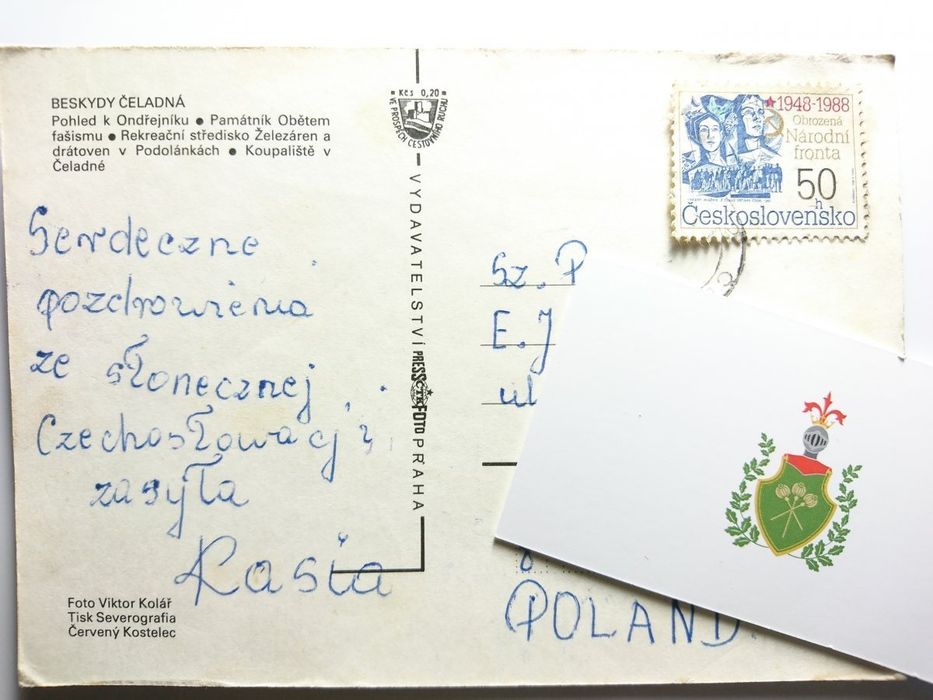 BESKYDY ČELADNÁ
Pohled k Ondřejníku ● Památník Obětem
fašismu ● Rekreační středisko Železáren a
drátoven v Podolánkách ● Koupaliště v
Čeladné
Serdeczne
pozdrowienia
ze słonecznej
Czechosłowacji
zasyła
Kasia
Foto Viktor Kolář
Tisk Severografia
Červený Kostelec
Kčs 0,20
VE PROSPĚCH CESTOVNÍHO RUCHU
VYDAVATELSTVÍ PRESSFOTO PRAHA
ČTK
★1948-1988
Obrozená
Národní
fronta
50
h
Československo
Sz. P
E. J
ul
POLAND.